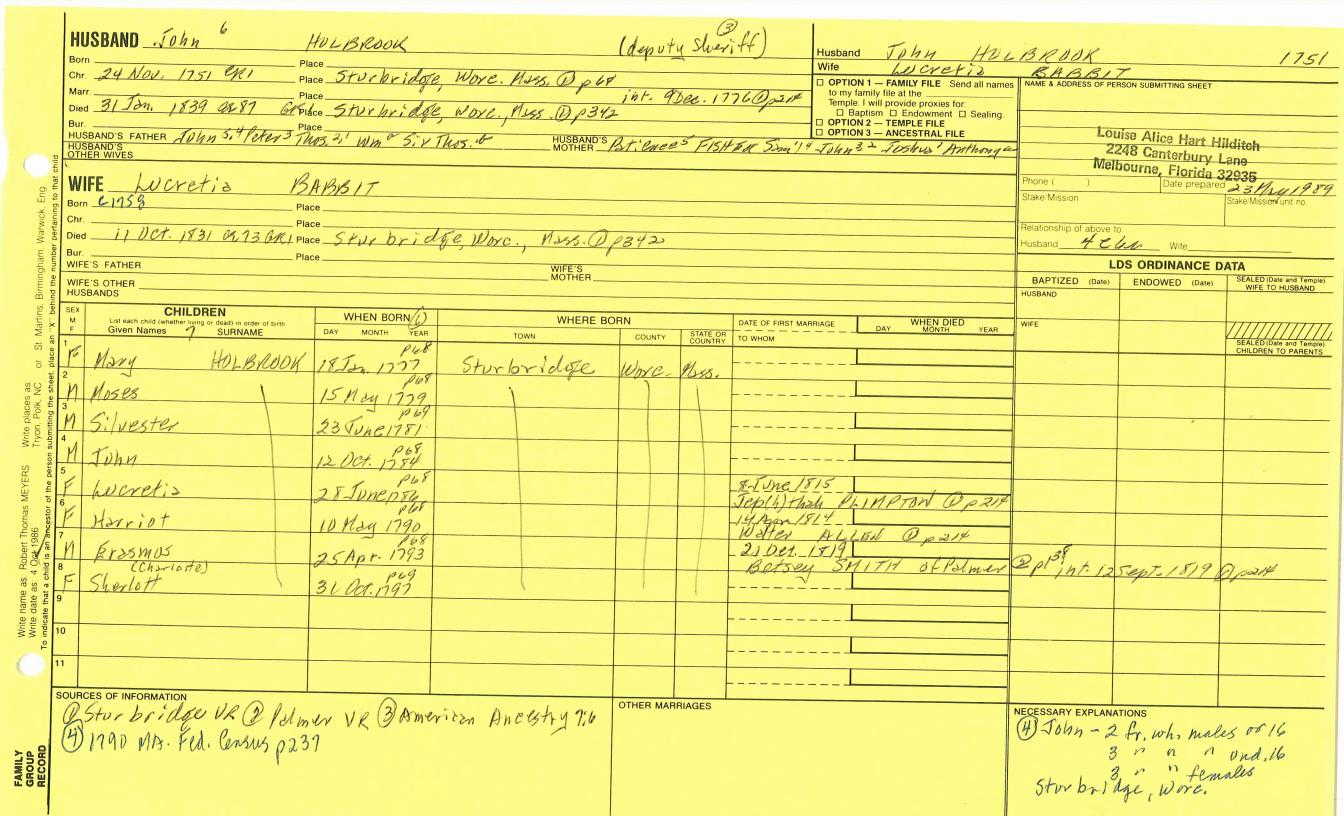 HUSBAND John 6 HOLBROOK (deputy sheriff) ③
Born Place
Chr. 24 Nov. 1751 GR1 Place Sturbridge, Worc. Mass. ① p68
Marr Place int. 9 Dec. 1776 ① p214
Died 31 Jan. 1839 ae 87 GR1 Place Sturbridge, Worc., Mass. ① p342
Bur. Place
HUSBAND'S FATHER John 5,4 Peter 3 Thos. 2,1 Wm Sir Thos.
HUSBAND'S MOTHER Patience 5 FISHER Sam'l 4 John 3 2 Joshua 1 Anthony
HUSBAND'S OTHER WIVES
Husband John HOLBROOK 1751
Wife Lucretia BABBIT
☐ OPTION 1 — FAMILY FILE Send all names
to my family file at the
Temple. I will provide proxies for
☐ Baptism ☐ Endowment ☐ Sealing.
☐ OPTION 2 — TEMPLE FILE
☐ OPTION 3 — ANCESTRAL FILE
NAME & ADDRESS OF PERSON SUBMITTING SHEET
Louise Alice Hart Hilditch
2248 Canterbury Lane
Melbourne, Florida 32935
Phone ( ) Date prepared 23 May 1989
Stake/Mission Stake/Mission unit no.
Relationship of above to
Husband 4C Wife
WIFE Lucretia BABBIT
Born c1758 Place
Chr. Place
Died 11 Oct. 1831 ae 73 GR1 Place Sturbridge, Worc., Mass. ① p342
Bur. Place
WIFE'S FATHER WIFE'S MOTHER
WIFE'S OTHER HUSBANDS
LDS ORDINANCE DATA
BAPTIZED (Date) ENDOWED (Date) SEALED (Date and Temple) WIFE TO HUSBAND
HUSBAND
WIFE
SEALED (Date and Temple) CHILDREN TO PARENTS
SEX M F CHILDREN WHEN BORN ① WHERE BORN DATE OF FIRST MARRIAGE WHEN DIED
List each child (whether living or dead) in order of birth
Given Names 7 SURNAME DAY MONTH YEAR TOWN COUNTY STATE OR COUNTRY TO WHOM DAY MONTH YEAR
1 F Mary HOLBROOK 18 Jan. 1777 p68 Sturbridge Worc. Mass.
2 M Moses 15 May 1779 p68
3 M Silvester 23 June 1781 p69
4 M John 12 Oct. 1784 p68
5 F Lucretia 28 June 1786 p68 8 June 1815
Jep(h)thah PLIMPTON ① p214
6 F Harriot 10 May 1790 p68 14 Apr. 1814
Walter ALLEN ① p214
7 M Erasmus 25 Apr. 1793 p68 21 Dec. 1819
Betsey SMITH of Palmer ② p138 int. 12 Sept. 1819 ① p214
8 F (Charlotte) Sherlott 31 Oct. 1797 p69
9
10
11
SOURCES OF INFORMATION
① Sturbridge VR ② Palmer VR ③ American Ancestry 7:6
④ 1790 MA. Fed. Census p237
OTHER MARRIAGES
NECESSARY EXPLANATIONS
④ John - 2 fr. wh. males ov 16
3 " " " und. 16
3 " " females
Sturbridge, Worc.
Write name as Robert Thomas MEYERS Write places as Tryon, Polk, NC or St. Martins, Birmingham, Warwick, Eng.
Write date as 4 Oct 1986
To indicate that a child is an ancestor of the person submitting the sheet, place an "X" behind the number pertaining to that child
FAMILY GROUP RECORD